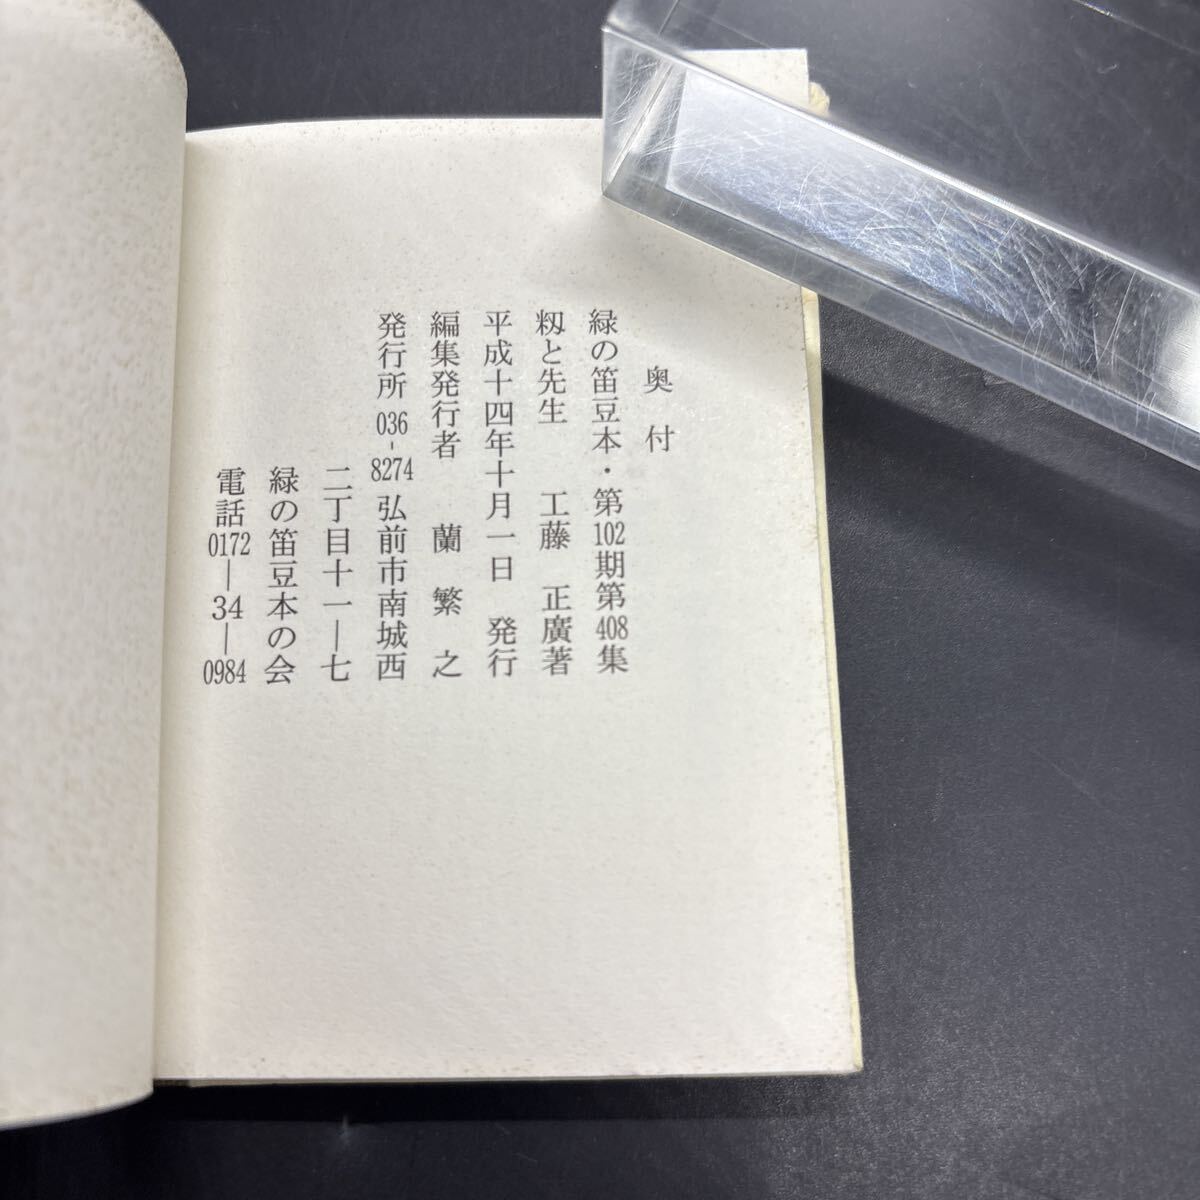 奥付
緑の笛豆本・第102期第408集
籾と先生 工藤正廣著
平成十四年十月一日 発行
編集発行者 蘭繁之
発行所 036-8274 弘前市南城西
二丁目十一―七
緑の笛豆本の会
電話 0172―34―0984